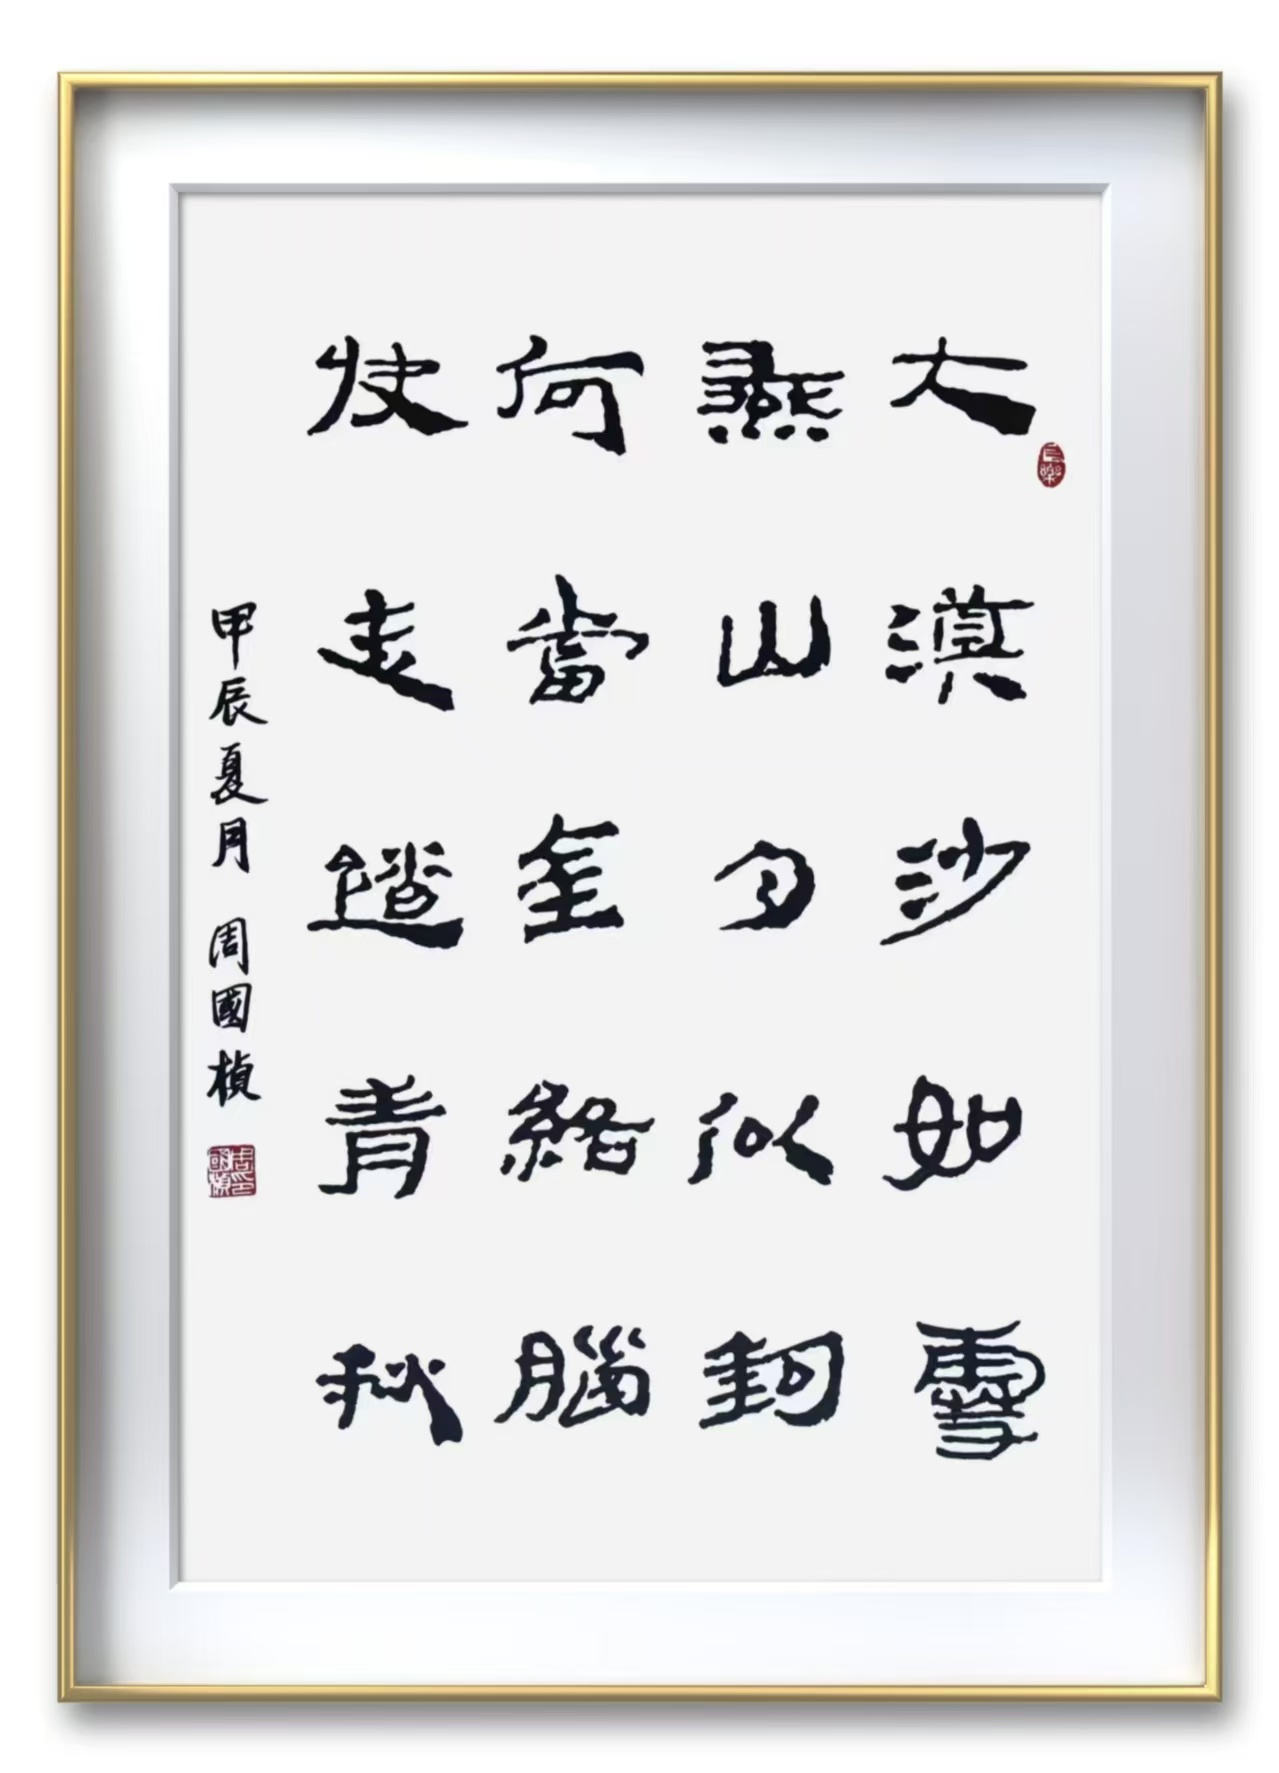 大漠沙如雪
燕山月似鉤
何當金絡腦
快走踏青秋
甲辰夏月 周國楨
周印國楨